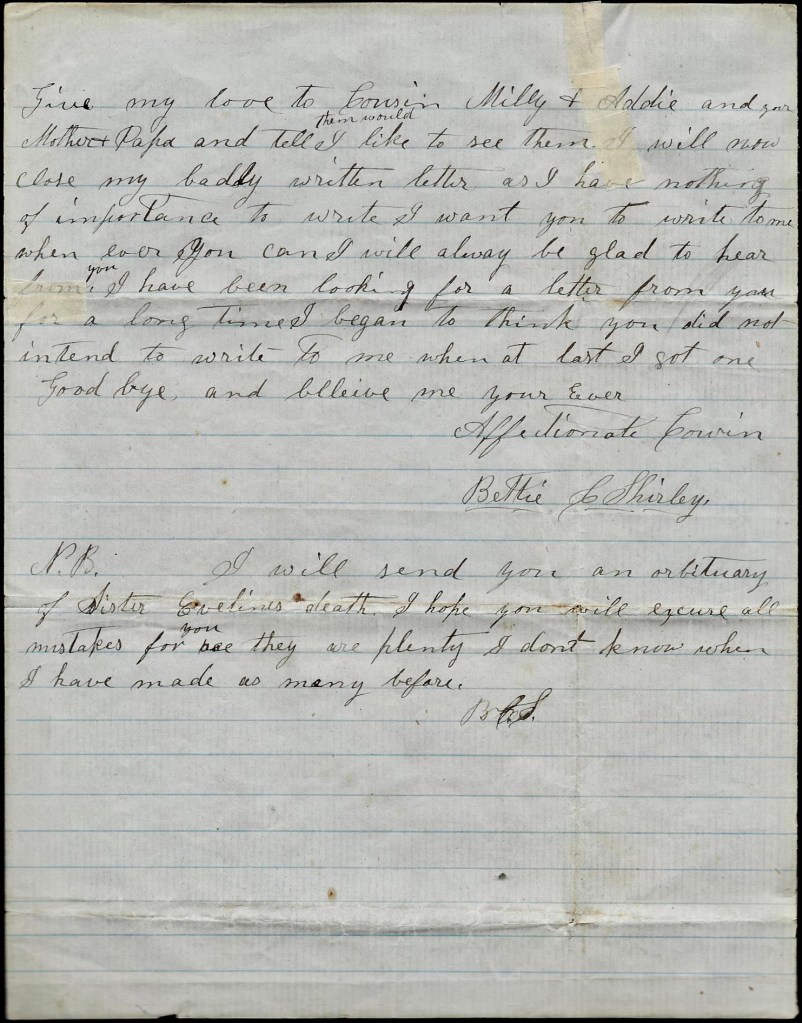 Give my love to Cousin Milly & Addie and your
them would
Mother & Papa and tell I like to see them. I will now
close my badly written letter as I have nothing
of importance to write I want you to write to me
when ever you can I will alway be glad to hear
you
from, I have been looking for a letter from you
for a long time I began to think you did not
intend to write to me when at last I got one
Good bye, and blleive me your Ever
Affectionate Cowin
Bettie C Shirley,
N.B. I will send you an orbituary
of Sister Evelines death. I hope you will excuse all
you
mistakes for see they are plenty I don't know when
I have made as many before.
B.C.S.